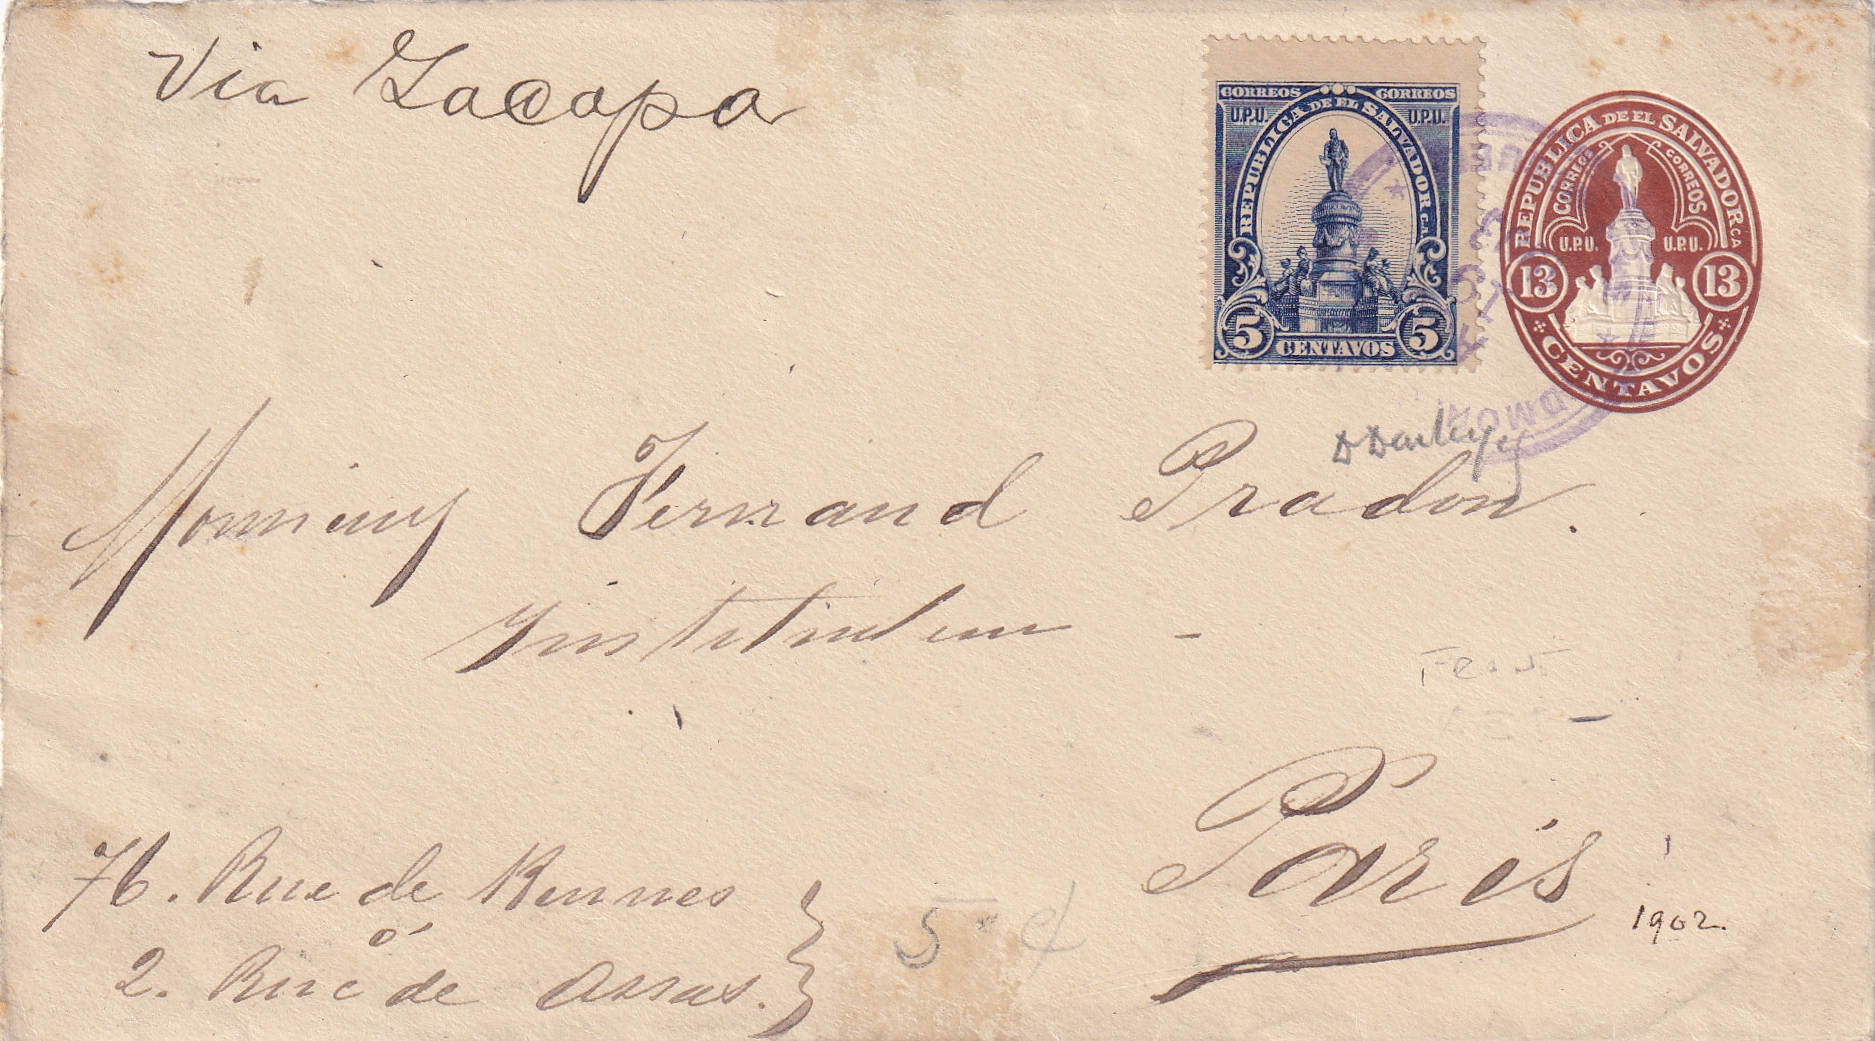 Via Zacapa
CORREOS CORREOS
U.P.U. U.P.U.
REPUBLICA DE EL SALVADOR C.A.
5 5
CENTAVOS
REPUBLICA DE EL SALVADOR CA
CORREOS CORREOS
U.P.U. U.P.U.
13 13
CENTAVOS
Monsieur Fernand Pradon.
Instituteur -
Paris
1902.
76. Rue de Rennes
ó
2. Rue de Assas.
5 ¢